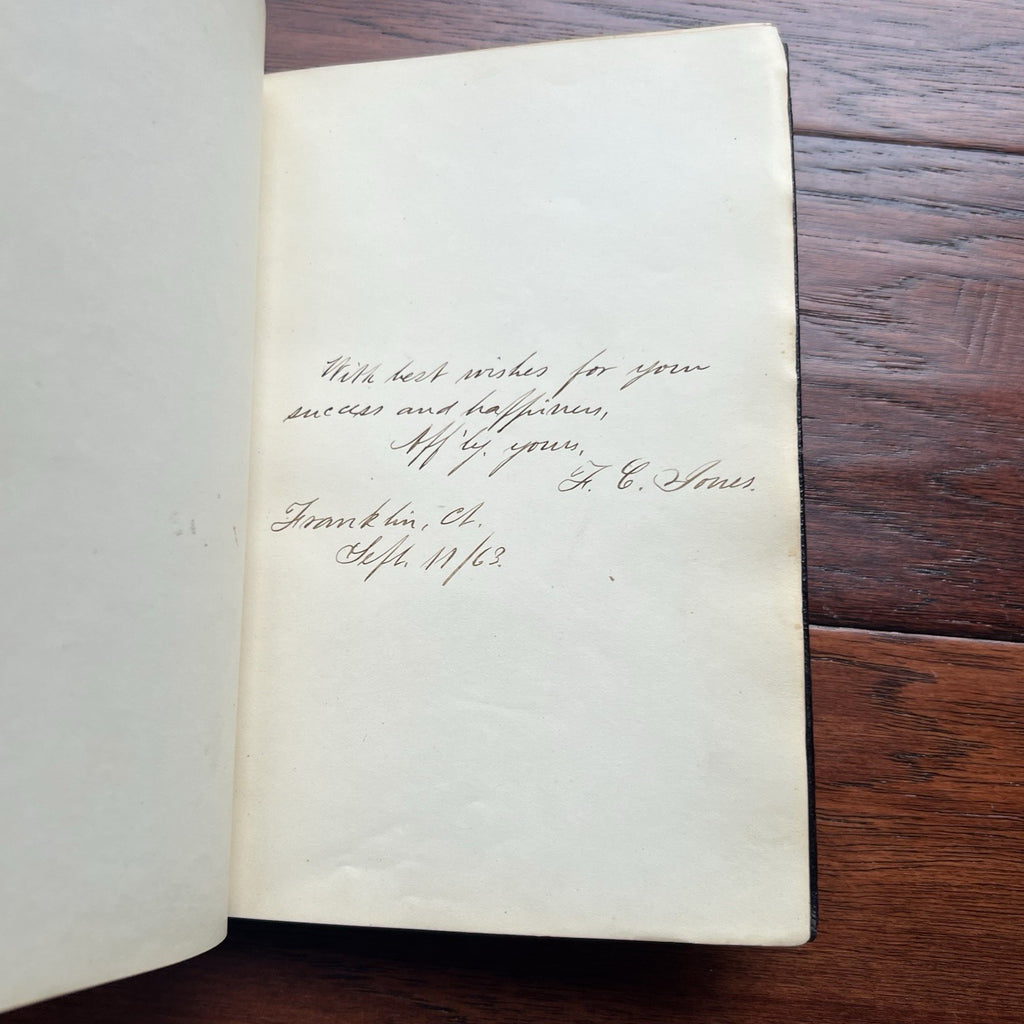 With best wishes for your
success and happiness,
Aff'ly. yours,
F. C. Jones.
Franklin, Ct.
Sept. 11/63.